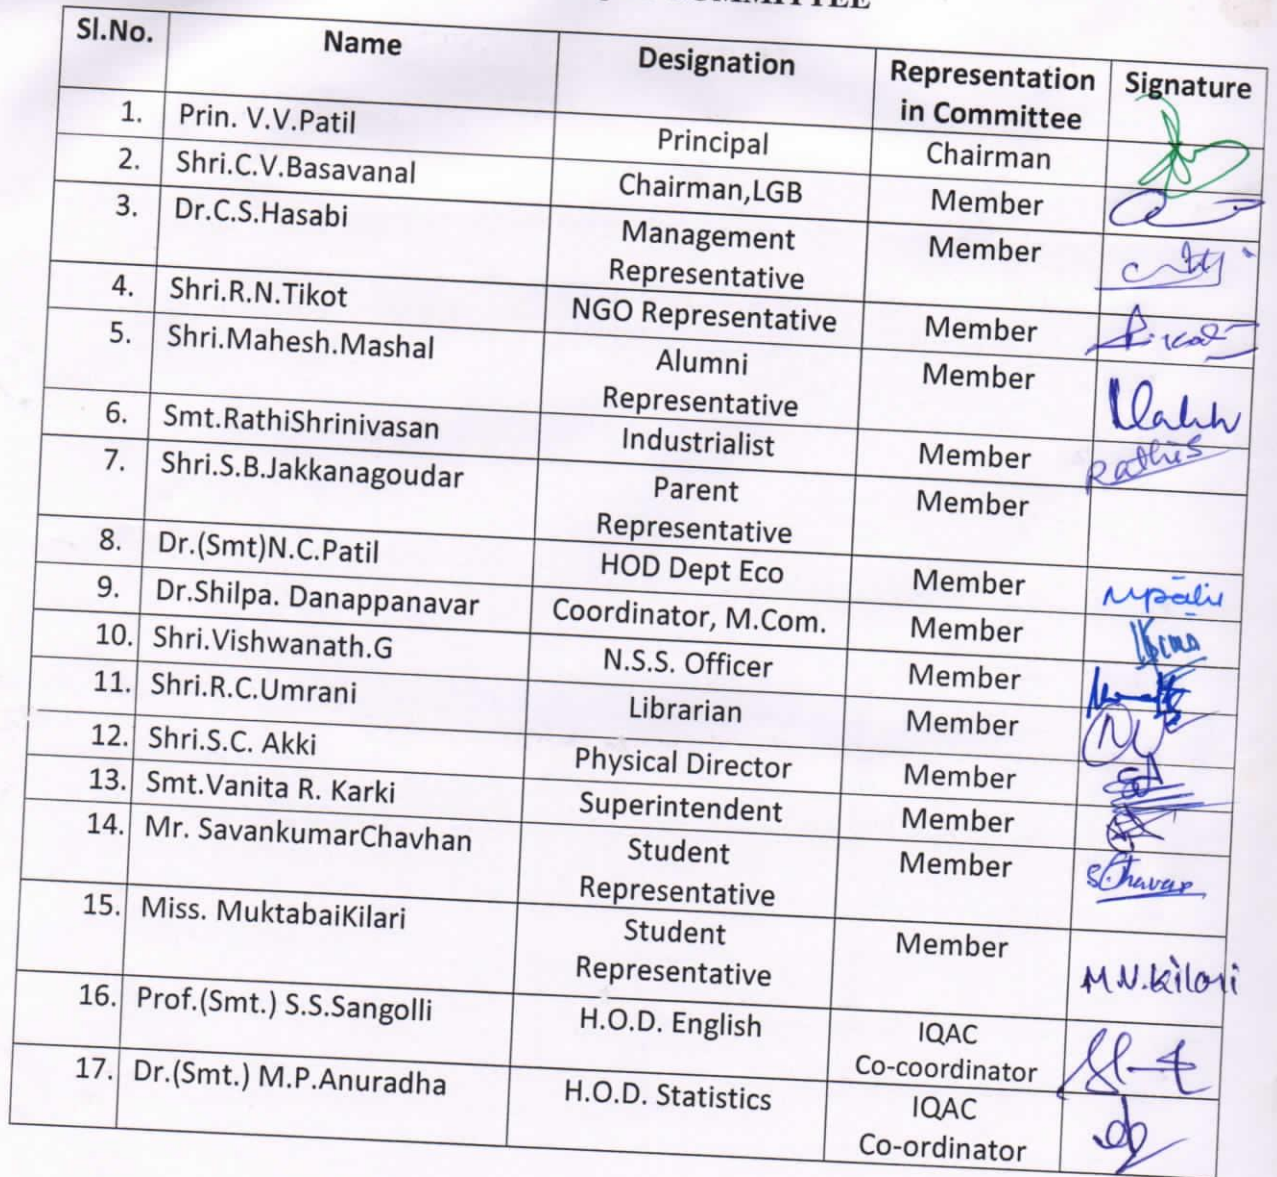 COMMITTEE
Sl.No. Name Designation Representation in Committee Signature
1. Prin. V.V.Patil Principal Chairman
2. Shri.C.V.Basavanal Chairman,LGB Member
3. Dr.C.S.Hasabi Management Representative Member
4. Shri.R.N.Tikot NGO Representative Member
5. Shri.Mahesh.Mashal Alumni Representative Member
6. Smt.RathiShrinivasan Industrialist Member Rathis
7. Shri.S.B.Jakkanagoudar Parent Representative Member
8. Dr.(Smt)N.C.Patil HOD Dept Eco Member
9. Dr.Shilpa. Danappanavar Coordinator, M.Com. Member
10. Shri.Vishwanath.G N.S.S. Officer Member
11. Shri.R.C.Umrani Librarian Member
12. Shri.S.C. Akki Physical Director Member
13. Smt.Vanita R. Karki Superintendent Member
14. Mr. SavankumarChavhan Student Representative Member
15. Miss. MuktabaiKilari Student Representative Member M.N.Kilari
16. Prof.(Smt.) S.S.Sangolli H.O.D. English IQAC Co-coordinator
17. Dr.(Smt.) M.P.Anuradha H.O.D. Statistics IQAC Co-ordinator